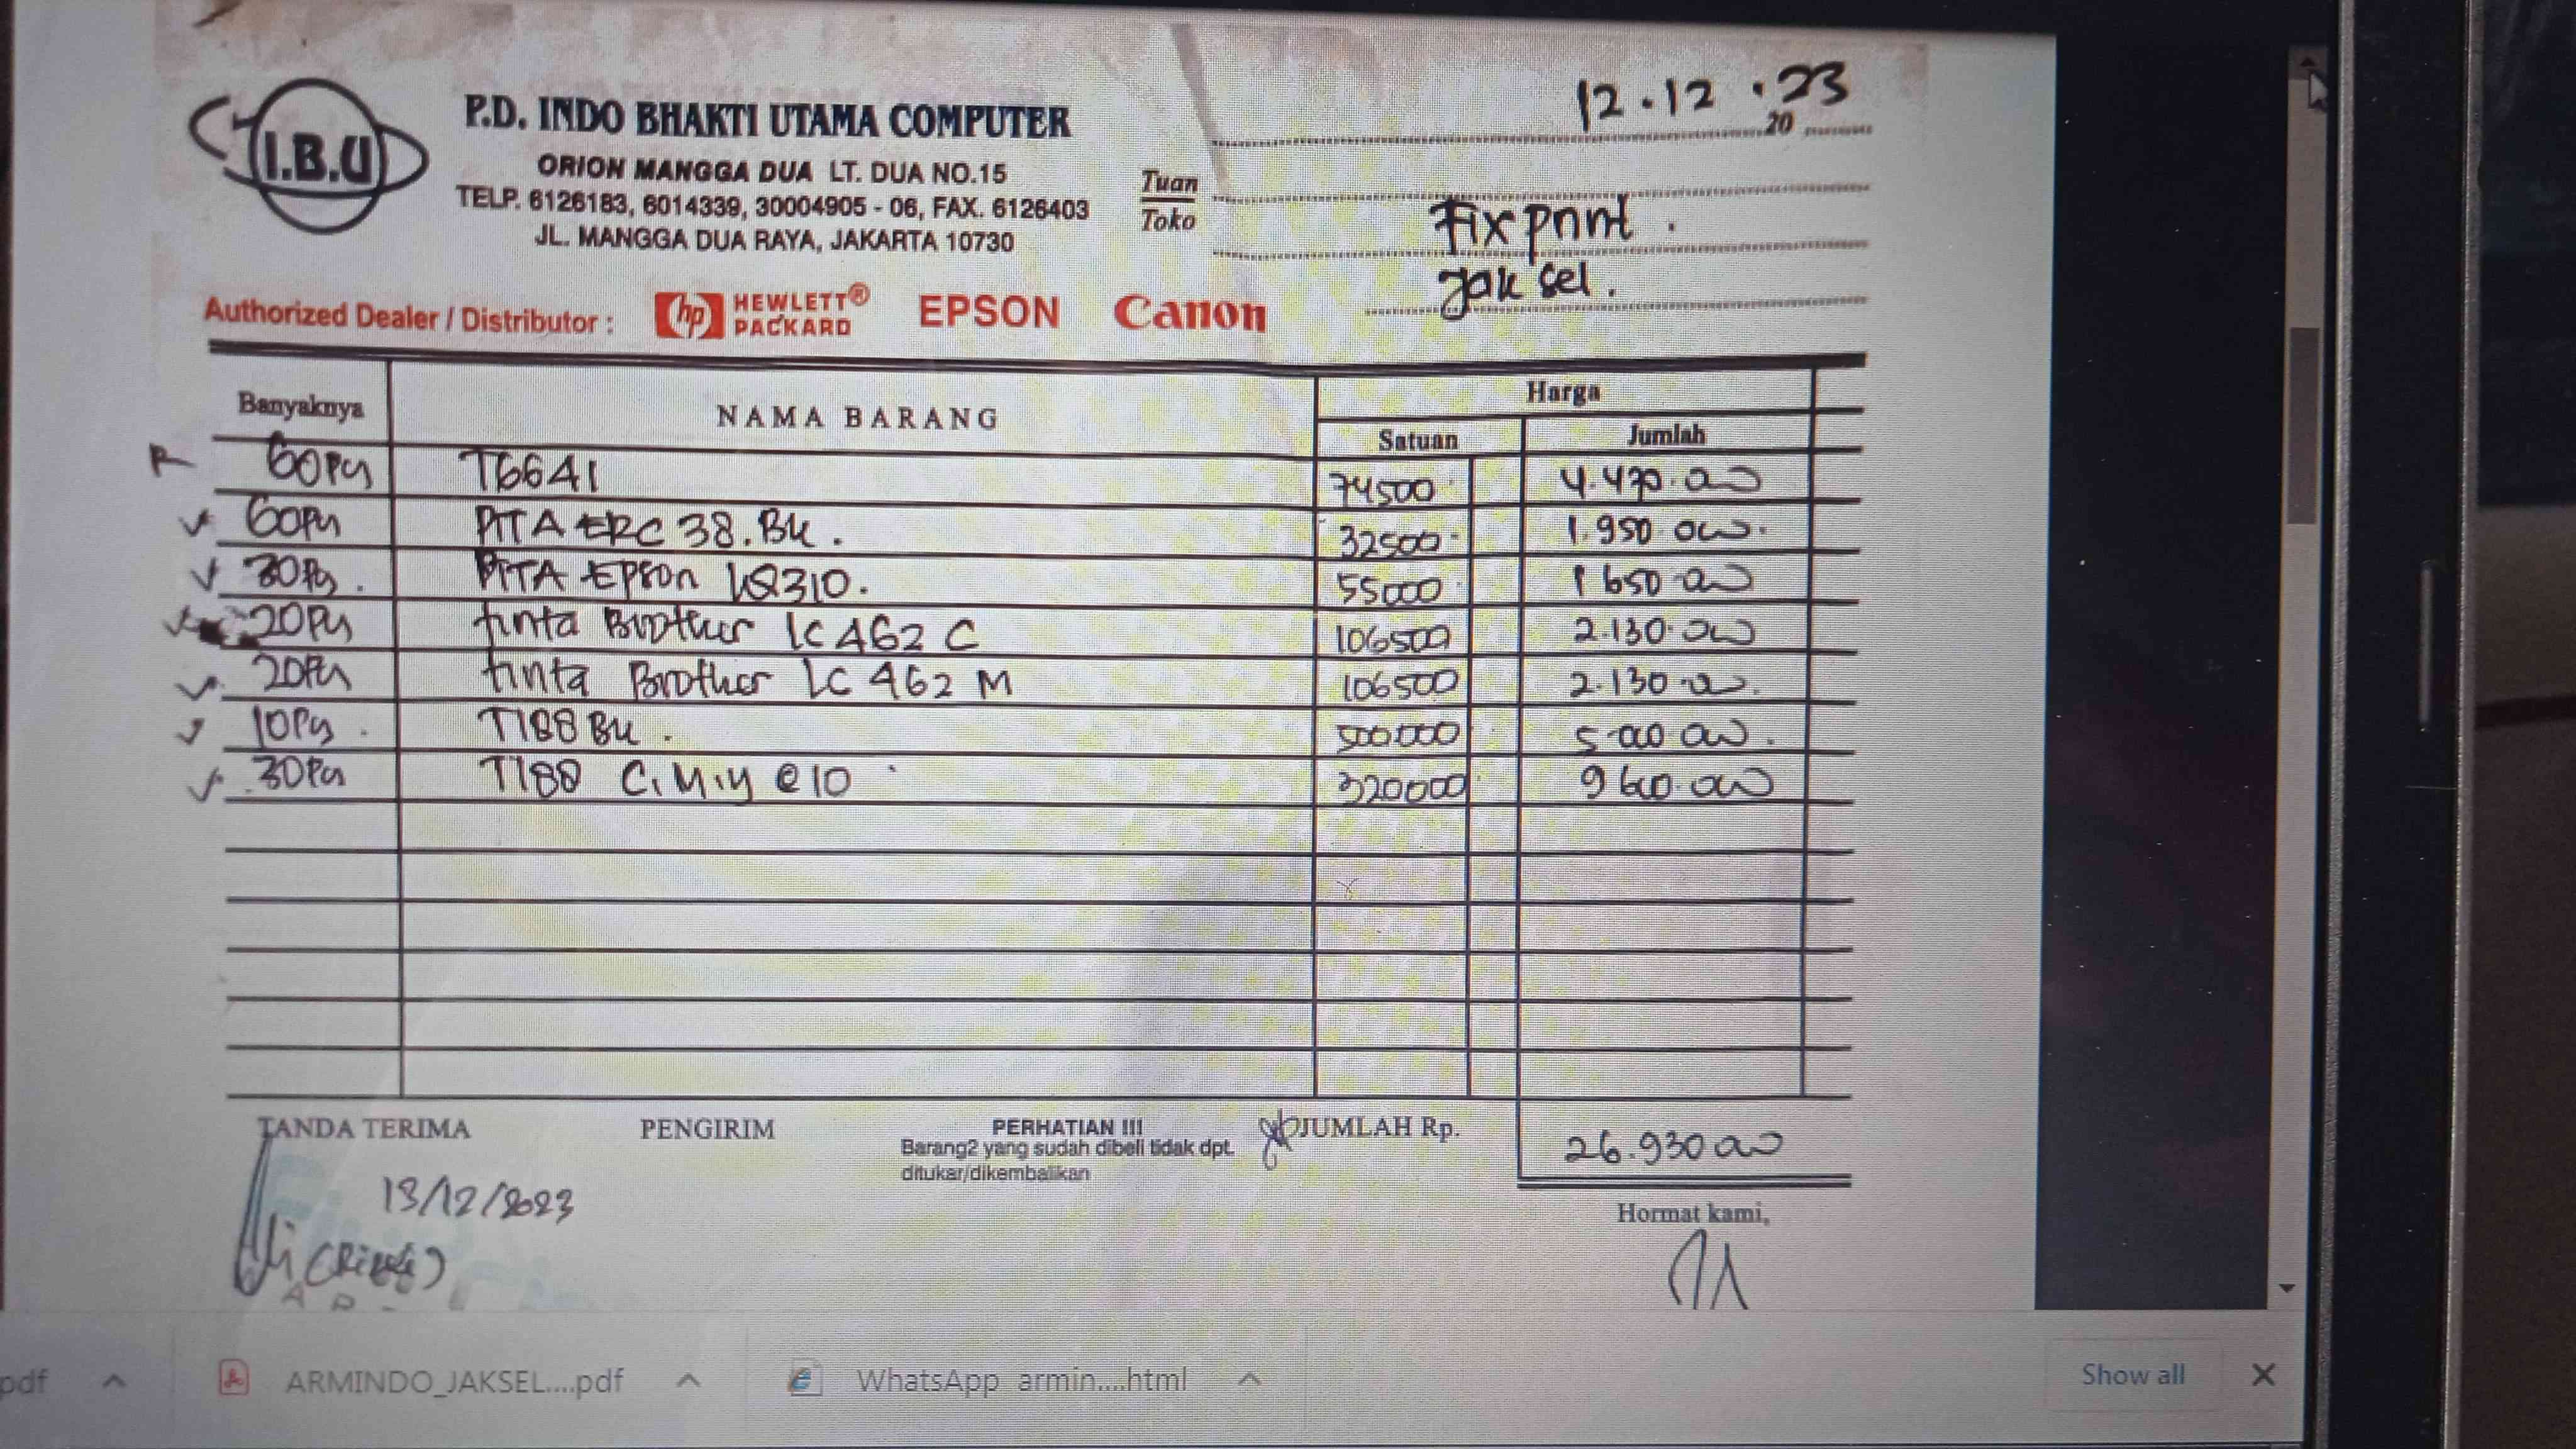 12.12.23
20
I.B.U
P.D. INDO BHAKTI UTAMA COMPUTER
ORION MANGGA DUA LT. DUA NO.15
TELP. 6126183, 6014339, 30004905 - 06, FAX. 6126403
JL. MANGGA DUA RAYA, JAKARTA 10730
Tuan
Toko
Fixprint.
Jaksel.
Authorized Dealer / Distributor : hp HEWLETT® PACKARD EPSON Canon
Banyaknya NAMA BARANG Harga
Satuan Jumlah
60Pcs T6641 74500 4.470.000
60Pcs PITA ERC 38.BK. 32500 1.950.000.
30Pcs. PITA Epson LQ310. 55000 1 650.000
20Pcs tinta Brother LC 462 C 106500 2.130.000
20Pcs tinta Brother LC 462 M 106500 2.130.000.
10Pcs. T188 BK. 500000 5.000.000.
30Pcs T188 C.M.Y @10 320000 9 600.000
TANDA TERIMA PENGIRIM PERHATIAN !!! JUMLAH Rp. 26.930.000
Barang2 yang sudah dibeli tidak dpt.
ditukar/dikembalikan
13/12/2023
Hormat kami,
pdf ARMINDO_JAKSEL....pdf WhatsApp armin....html Show all